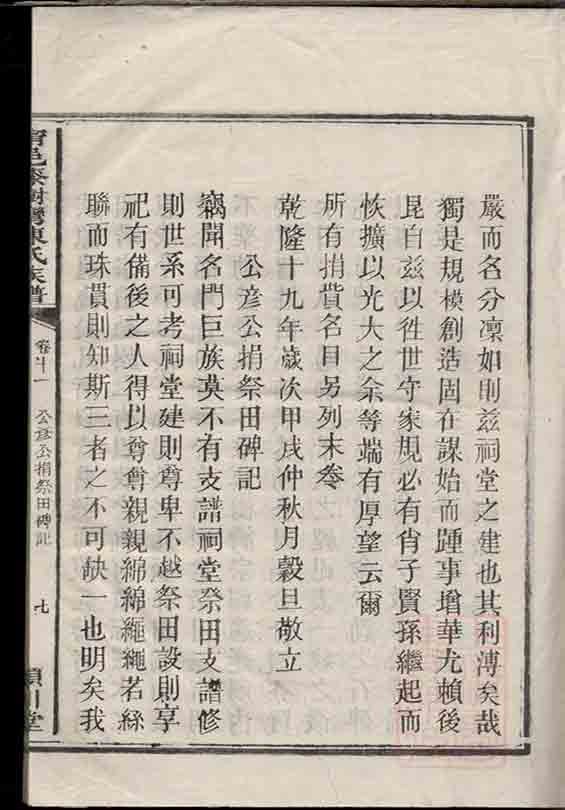 嚴而名分凜如則茲祠堂之建也其利溥矣哉
獨是規模創造固在謀始而踵事增華尤賴後
昆自茲以徃世守家規必有肖子賢孫繼起而
恢擴以光大之余等端有厚望云爾
所有捐貲名目另列末叅
乾隆十九年歲次甲戌仲秋月穀旦敬立
公彥公捐祭田碑記
竊聞名門巨族莫不有支譜祠堂祭田支譜修
則世系可考祠堂建則尊卑不越祭田設則享
祀有備後之人得以尊尊親親綿綿繩繩若絲
聯而珠貫則知斯三者之不可缺一也明矣我
甯邑桑樹灣陳氏族譜
卷十一
公彥公捐祭田碑記
七
潁川堂